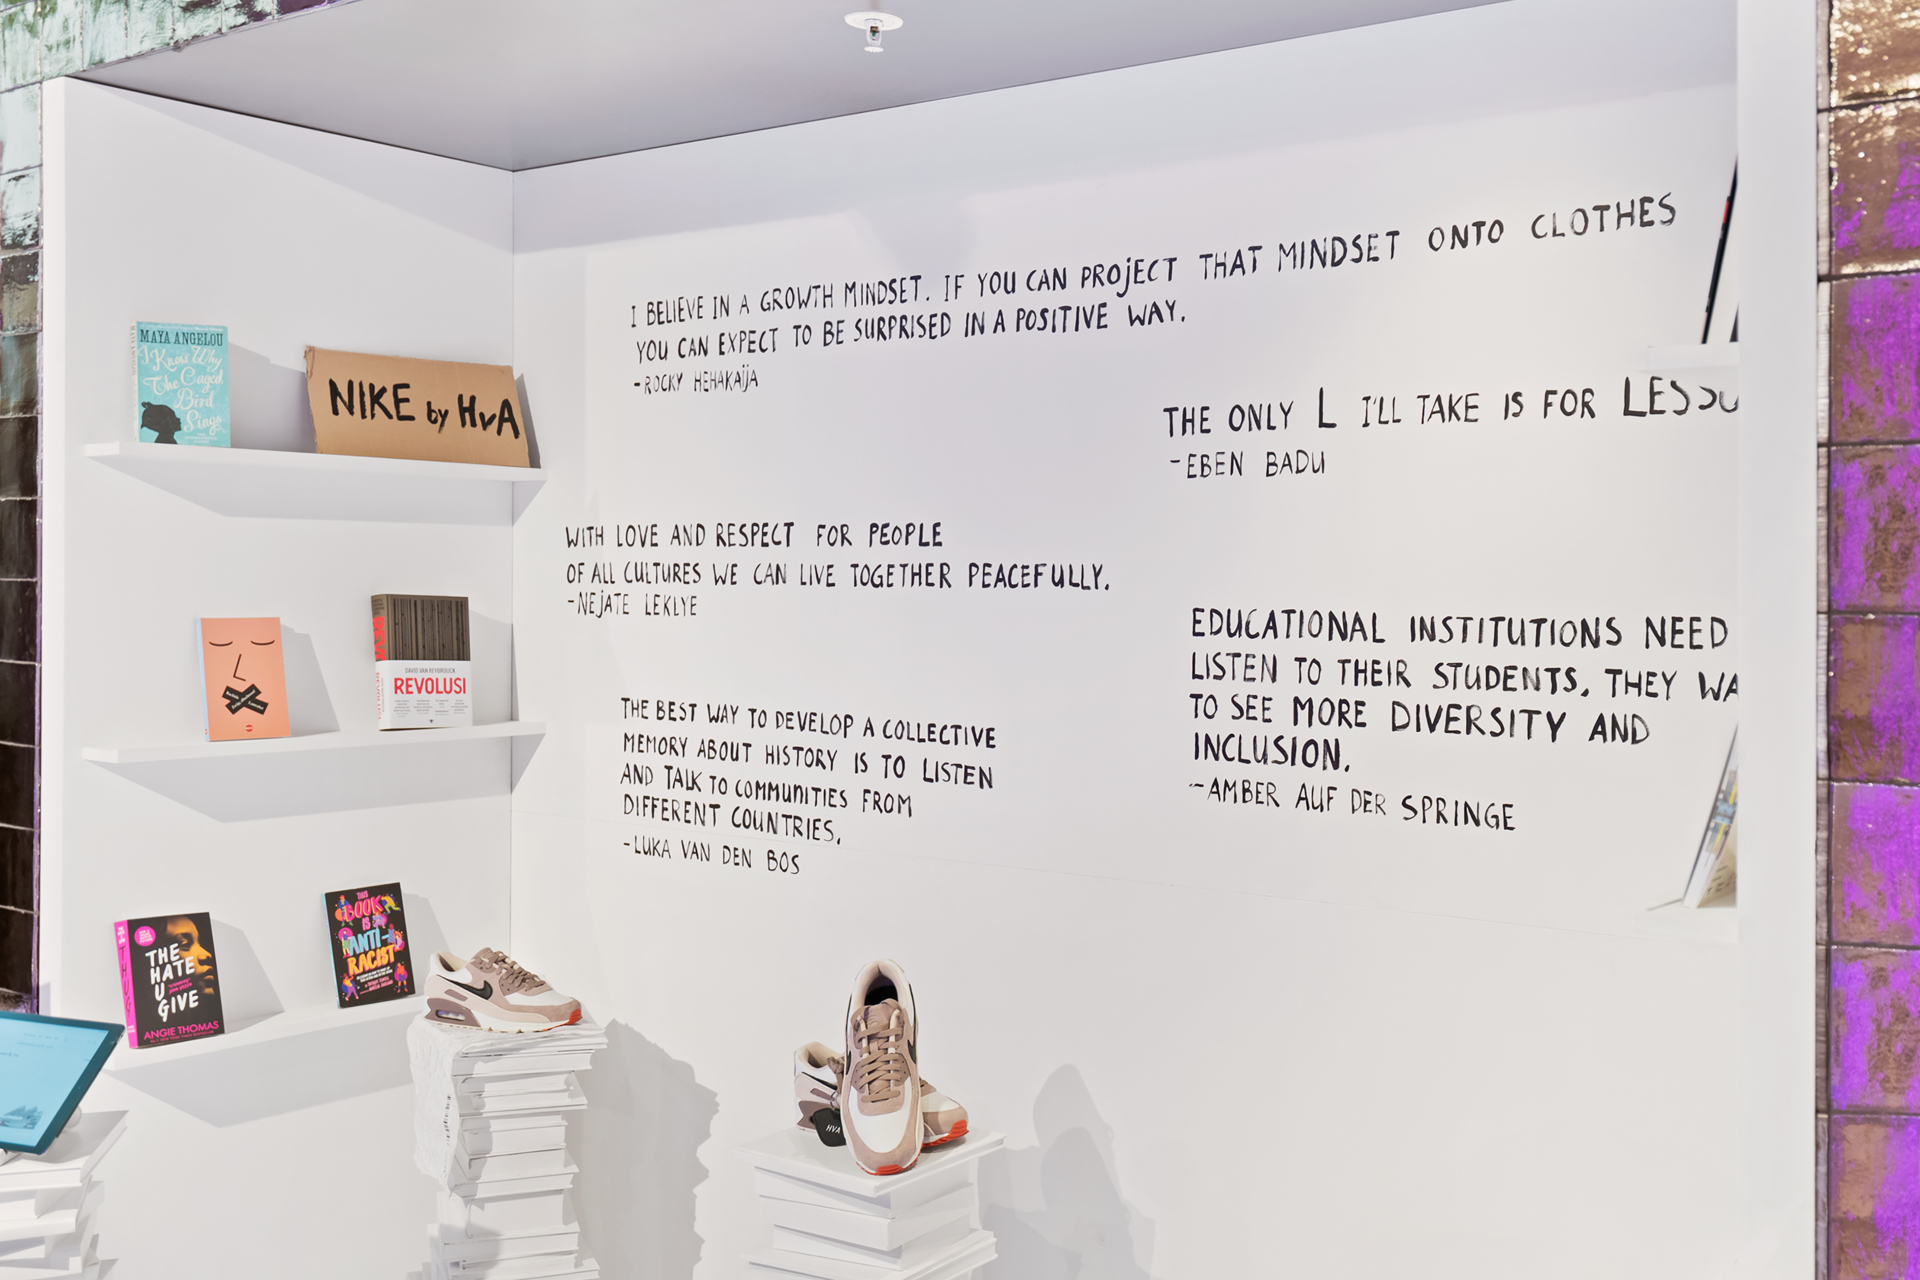 I BELIEVE IN A GROWTH MINDSET. IF YOU CAN PROJECT THAT MINDSET ONTO CLOTHES
YOU CAN EXPECT TO BE SURPRISED IN A POSITIVE WAY.
-ROCKY HEHAKAIJA
THE ONLY L I'LL TAKE IS FOR
-EBEN BADU
WITH LOVE AND RESPECT FOR PEOPLE
OF ALL CULTURES WE CAN LIVE TOGETHER PEACEFULLY.
-NEJATE LEKLYE
EDUCATIONAL INSTITUTIONS NEED
LISTEN TO THEIR STUDENTS. THEY WA
TO SEE MORE DIVERSITY AND
INCLUSION.
-AMBER AUF DER SPRINGE
THE BEST WAY TO DEVELOP A COLLECTIVE
MEMORY ABOUT HISTORY IS TO LISTEN
AND TALK TO COMMUNITIES FROM
DIFFERENT COUNTRIES.
-LUKA VAN DEN BOS
MAYA ANGELOU
I Know Why
The Caged
Bird
Sings
NIKE by HvA
DAVID VAN REYBROUCK
REVOLUSI
THE
HATE
U
GIVE
ANGIE THOMAS
THUG
THIS
BOOK
IS
ANTI-
RACIST
HVA